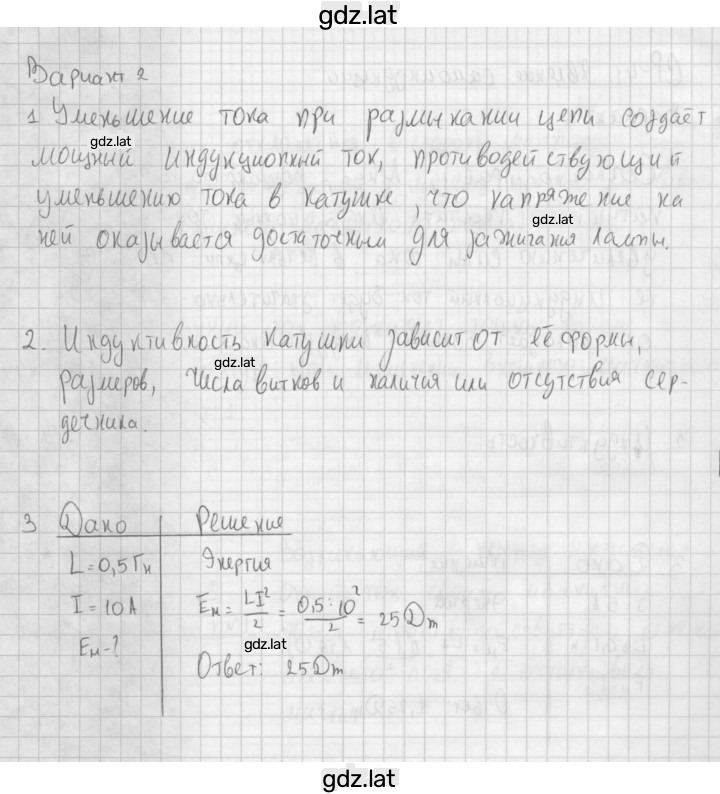 gdz.lat
Вариант 2
1 Уменьшение тока при размыкании цепи создаёт
gdz.lat
мощный индукционный ток, противодействующий
уменьшению тока в катушке, что напряжение на
gdz.lat
ней оказывается достаточным для зажигания лампы.
2. Индуктивность катушки зависит от её формы,
gdz.lat
размеров, числа витков и наличия или отсутствия сер-
дечника.
3 Дано Решение
L = 0,5 Гн Энергия
I = 10 А Eм = LI²/2 = 0,5·10²/2 = 25 Dm
Eм - ?
gdz.lat
Ответ: 25 Dm
gdz.lat